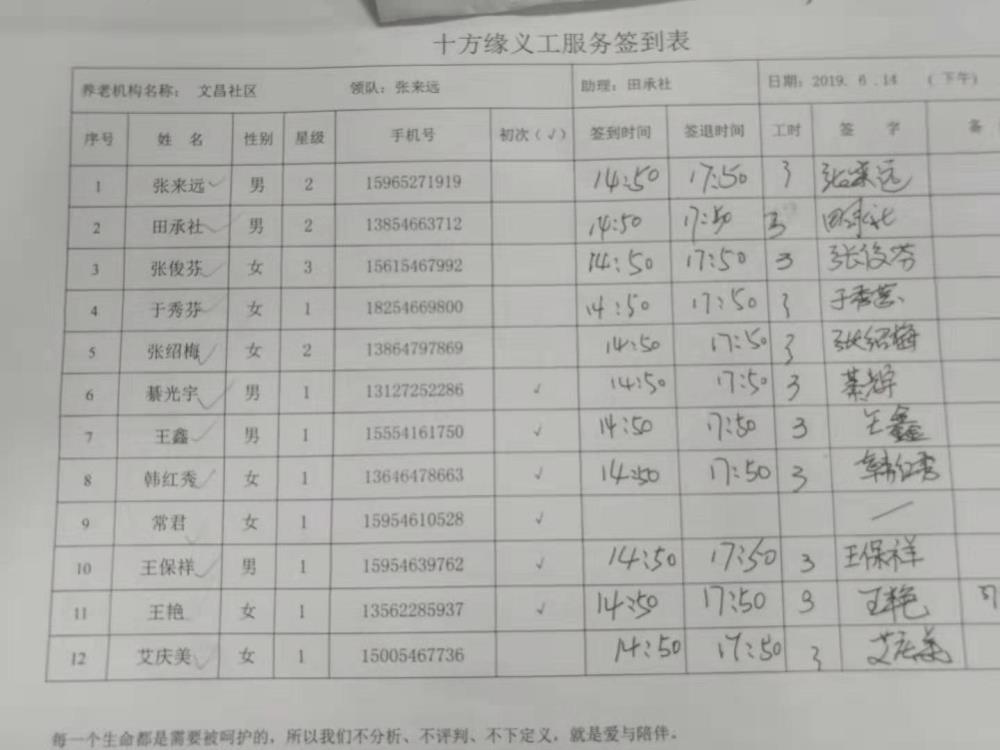 十方缘义工服务签到表
养老机构名称： 文昌社区 领队：张来远 助理：田承社 日期：2019. 6 .14 （ 下午）
序号 姓 名 性别 星级 手机号 初次（√） 签到时间 签退时间 工时 签 字 备
1 张来远 男 2 15965271919 14:50 17:50 3 张来远
2 田承社 男 2 13854663712 14:50 17:50 3 田承社
3 张俊芬 女 3 15615467992 14:50 17:50 3 张俊芬
4 于秀芬 女 1 18254669800 14:50 17:50 3 于秀芬
5 张绍梅 女 2 13864797869 14:50 17:50 3 张绍梅
6 綦光宇 男 1 13127252286 √ 14:50 17:50 3
7 王鑫 男 1 15554161750 √ 14:50 17:50 3 王鑫
8 韩红秀 女 1 13646478663 √ 14:50 17:50 3 韩红秀
9 常君 女 1 15954610528 √ —
10 王保祥 男 1 15954639762 √ 14:50 17:50 3 王保祥
11 王艳 女 1 13562285937 √ 14:50 17:50 3 王艳
12 艾庆美 女 1 15005467736 14:50 17:50 3 艾庆美
每一个生命都是需要被呵护的，所以我们不分析、不评判、不下定义，就是爱与陪伴。